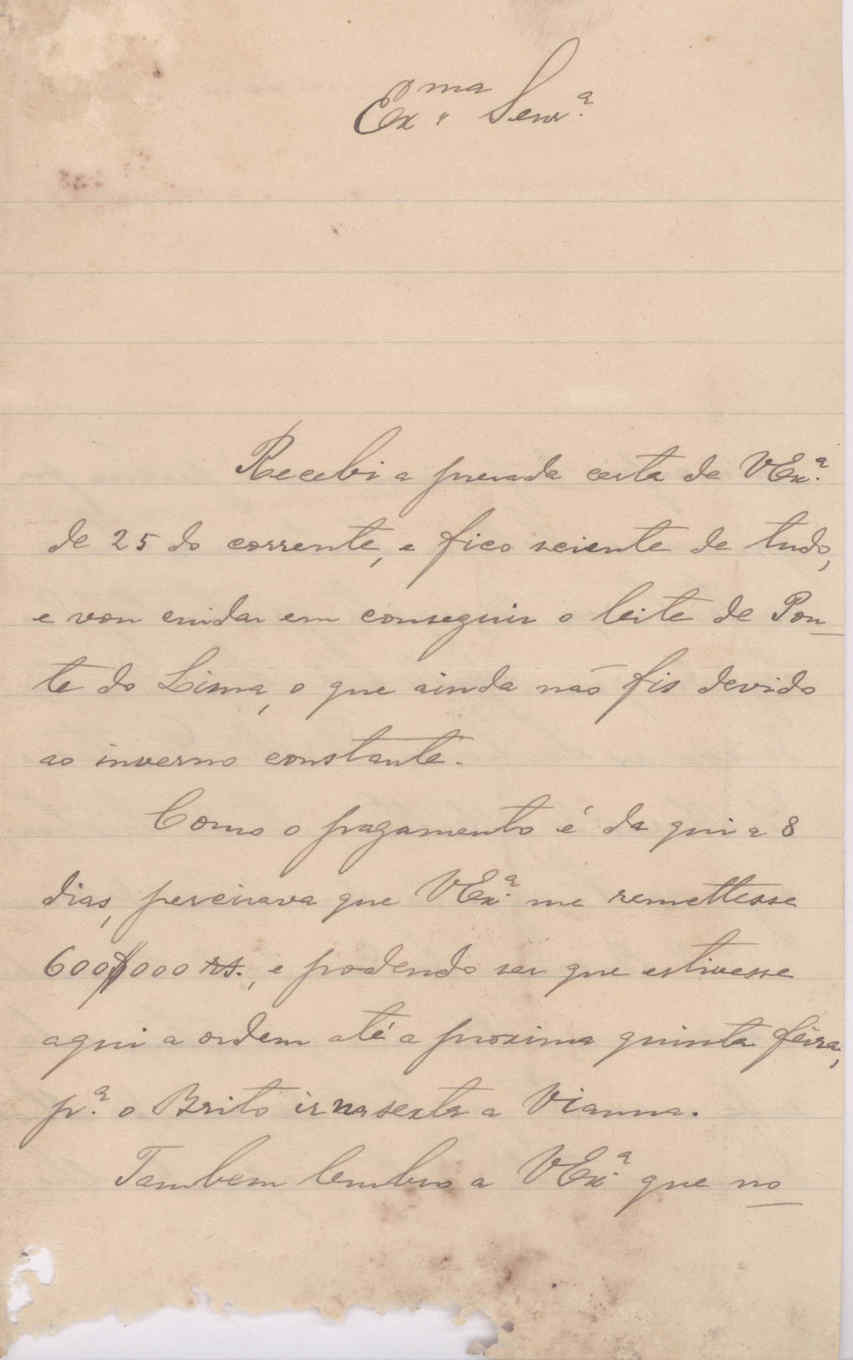 Ex.ma Senr.ª
Recebi a presada carta de VEx.ª
de 25 do corrente, e fico sciente de tudo,
e vou cuidar em conseguir o leite de Pon-
te do Lima, o que ainda não fis devido
ao inverno constante.
Como o pagamento é da qui a 8
dias, percisava que VEx.ª me remettesse
600$000 rs., e podendo ser que estivesse
aqui a ordem até a proxima quinta feira,
p.ª o Brito ir na sexta a Vianna.
Tambem lembro a VEx.ª que no